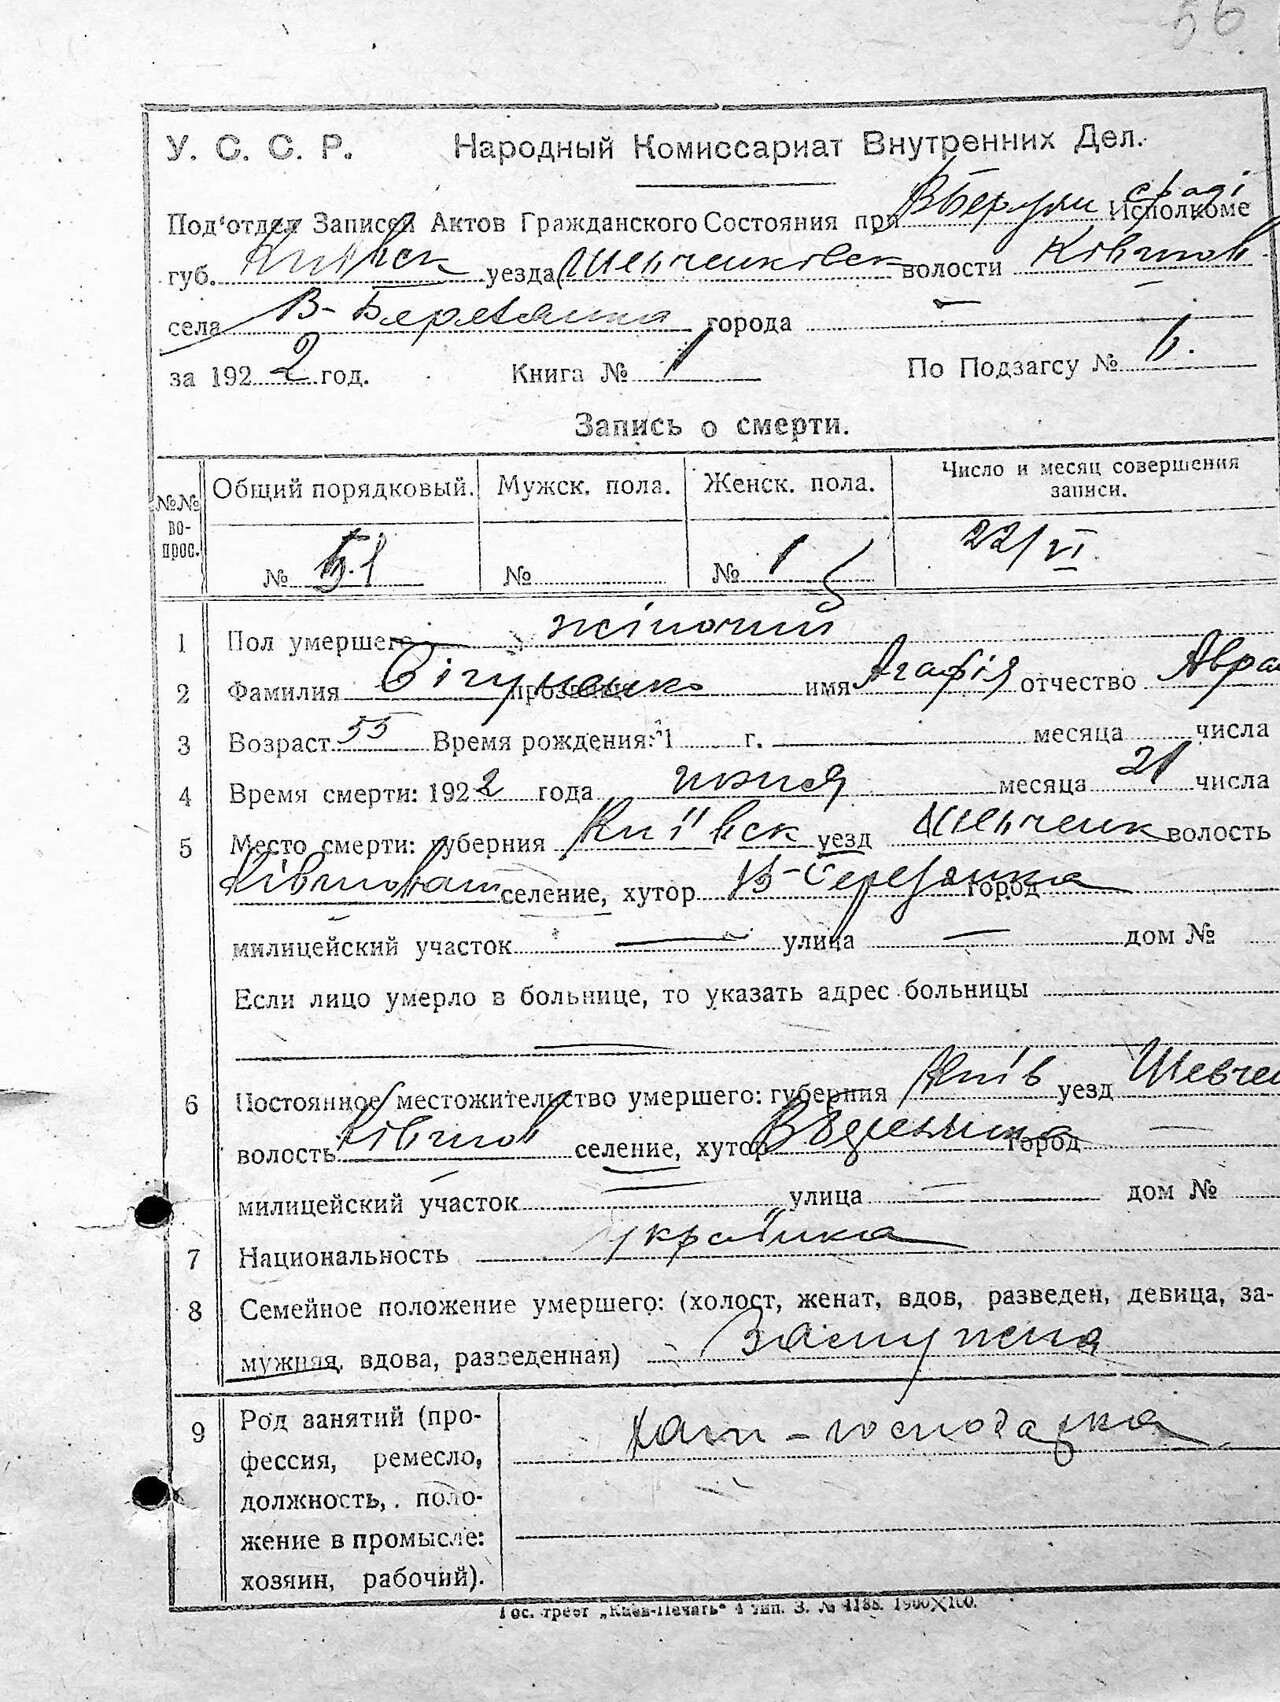 56
У. С. С. Р. Народный Комиссариат Внутренних Дел.
Под'отдел Записей Актов Гражданского Состояния при Исполкоме
губ. Київск уезда Шевченковск волости
села В-Березянка города —
за 1922 год. Книга № 1 По Подзагсу №
Запись о смерти.
№№ во-прос. Общий порядковый. Мужск. пола. Женск. пола. Число и месяц совершения записи.
№ 51 № № 1 22/VI
1 Пол умершего жіночий
2 Фамилия прозвище имя Агафія отчество Авра
3 Возраст 55 Время рождения: 1 г. месяца числа
4 Время смерти: 1922 года июня месяца 21 числа
5 Место смерти: губерния Київск уезд Шевченк волость
селение, хутор В-Березянка город
милицейский участок — улица — дом №
Если лицо умерло в больнице, то указать адрес больницы
6 Постоянное местожительство умершего: губерния Київ уезд Шевчен
волость селение, хутор город —
милицейский участок — улица — дом №
7 Национальность українка
8 Семейное положение умершего: (холост, женат, вдов, разведен, девица, за-
мужняя, вдова, разведенная) Замужня
9 Род занятий (про-
фессия, ремесло,
должность, поло-
жение в промысле:
хозяин, рабочий).
хати-господарка
Гос. трест „Киев-Печать“ 4 тип. З. № 4188. 1900X100.